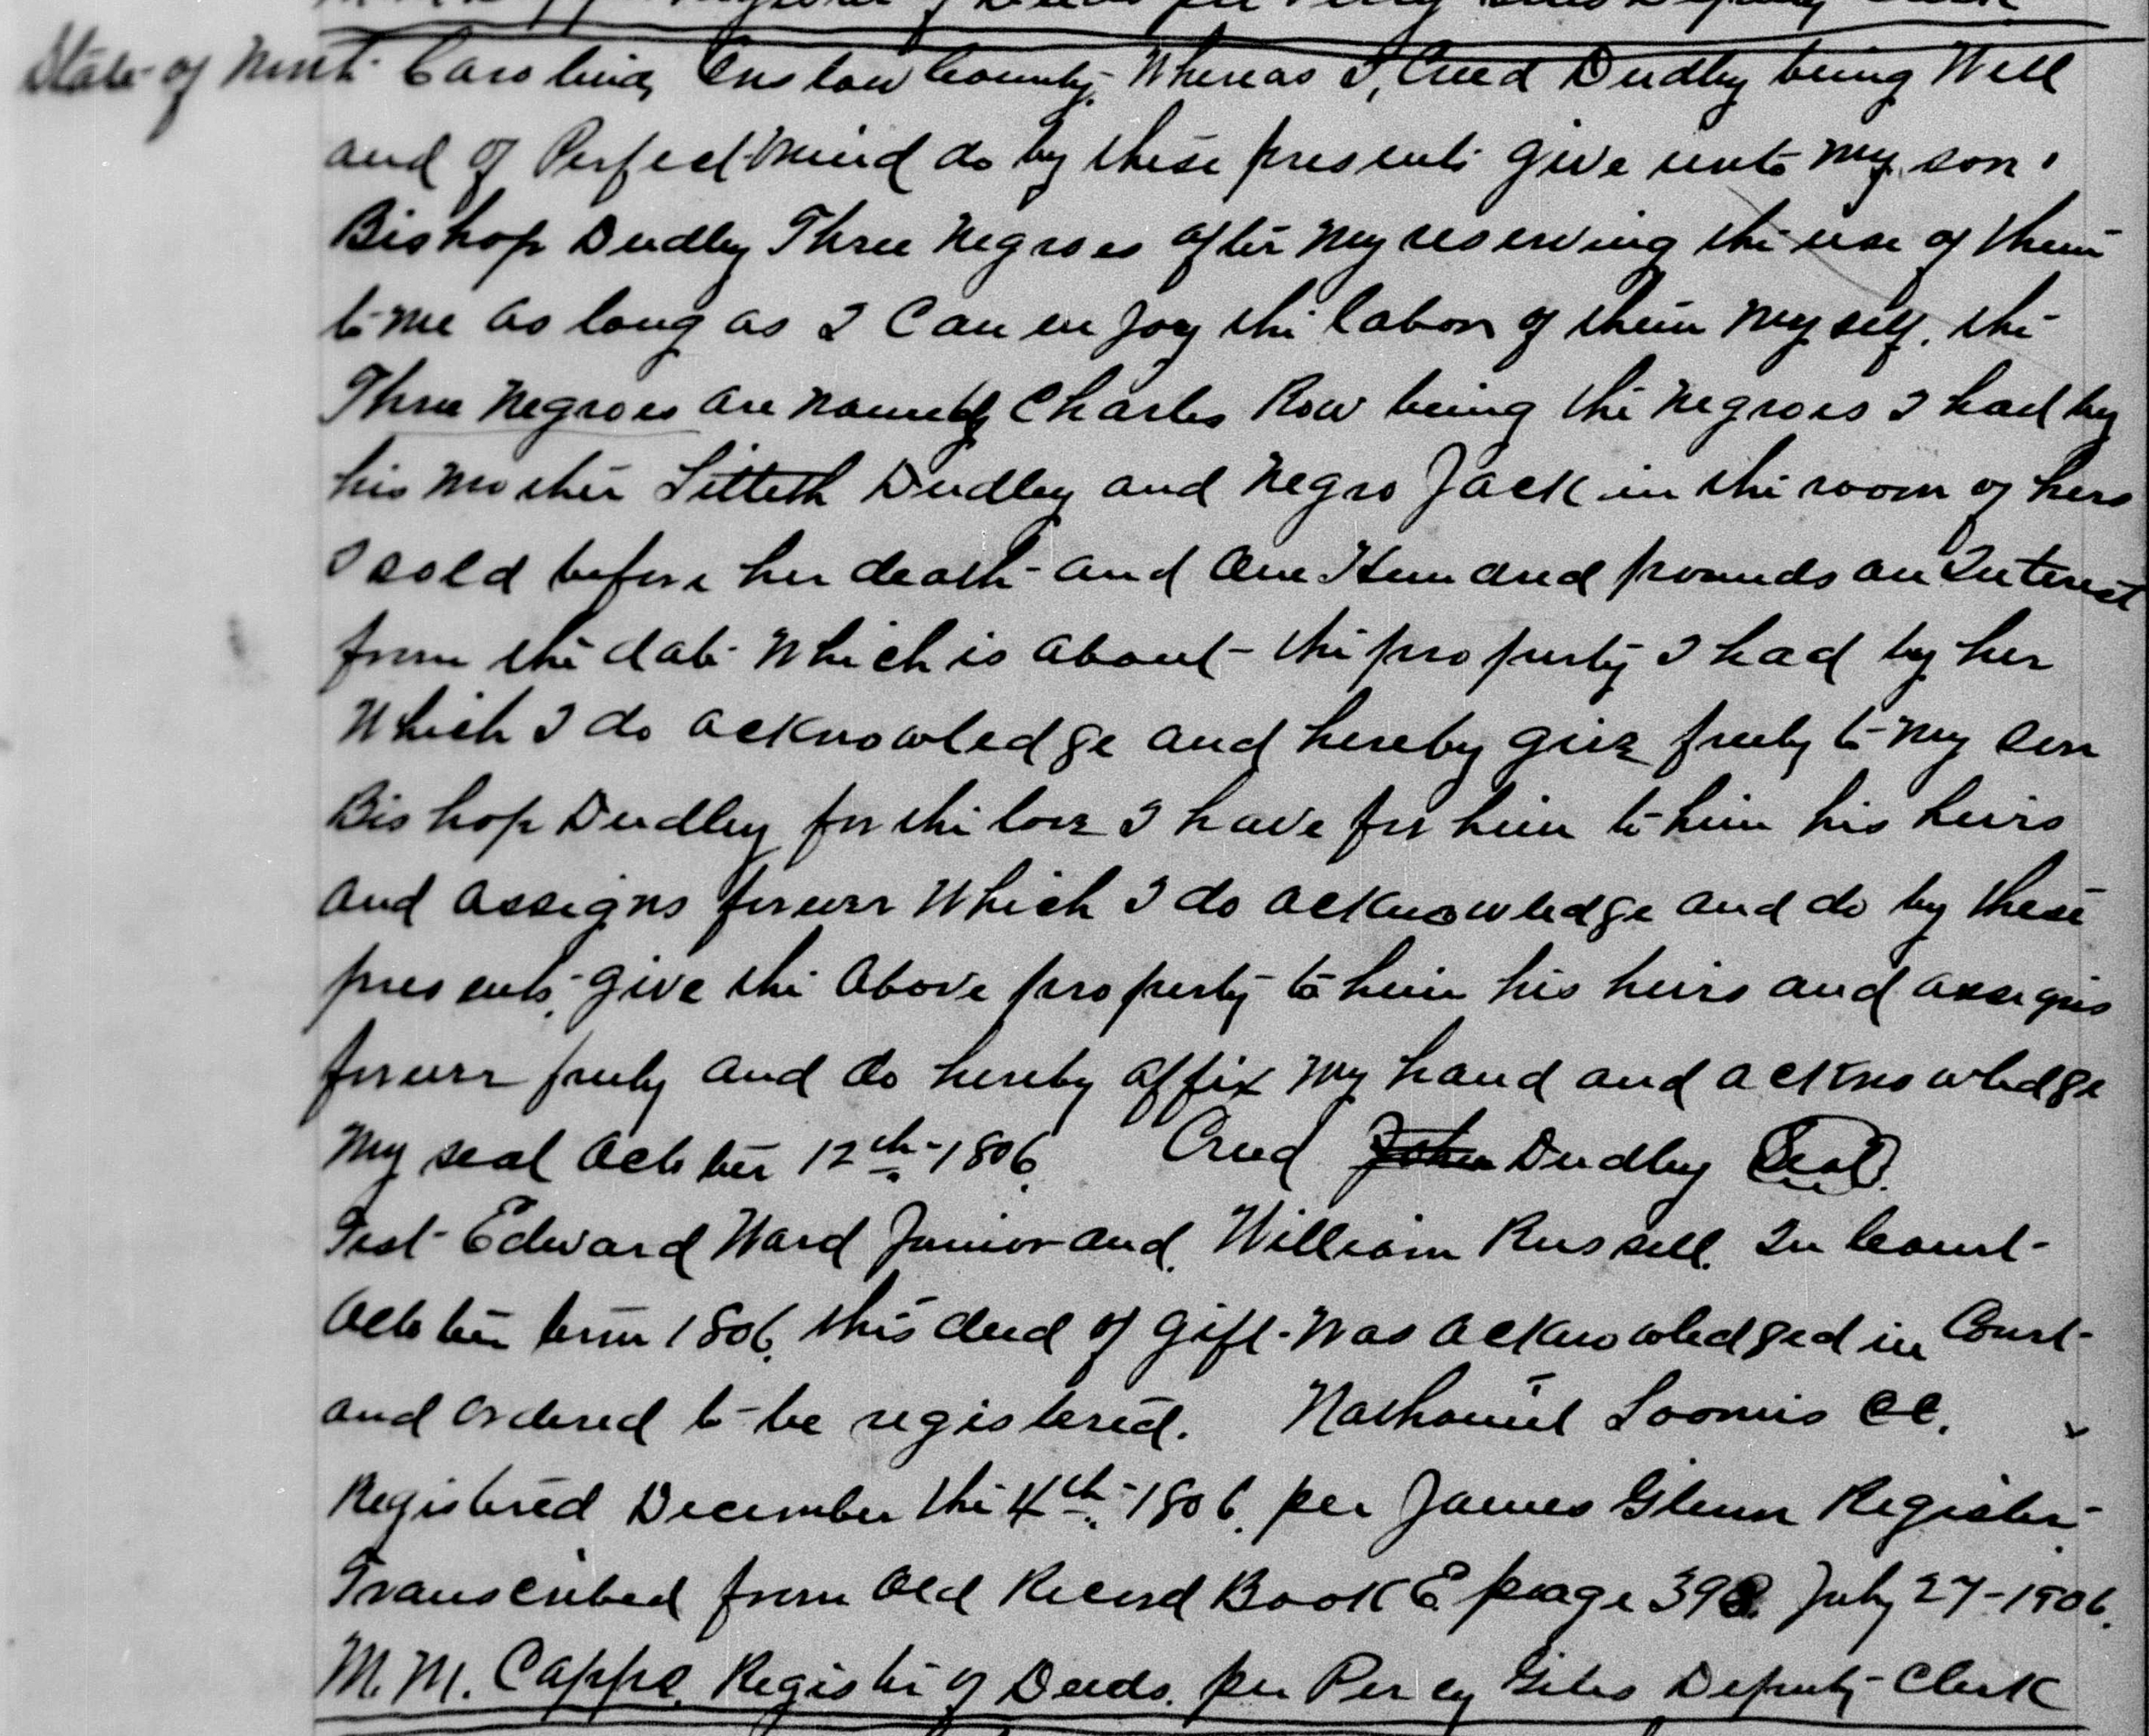 State of North Carolina, Onslow County, Whereas I, Creed Dudley being Well
and of Perfect mind do by these presents give unto my son
Bishop Dudley Three Negroes after my reserving the use of them
to me as long as I Can enjoy the labor of them myself, the
Three Negroes are namely Charles Row being the Negroes I had by
his mother Dudley and Negro Jack in the room of hers
I sold before her death and One Hundred pounds on Interest
from the date Which is about the property I had by her
Which I do acknowledge and hereby give freely to my son
Bishop Dudley for the love I have for him to him his heirs
and assigns forever Which I do acknowledge and do by these
presents, give the above property to him his heirs and assigns
forever freely and do hereby affix my hand and acknowledge
my seal October 12th 1806. Creed John Dudley Seal.
Test Edward Ward Junior and William Russell. In Court
October term 1806, this deed of gift was acknowledged in Court
and ordered to be registered. Nathaniel Loomis CC.
Registered December the 4th 1806. per James Glenn Register
Transcribed from Old Record Book E page 398. July 27-1906.
M. M. Capps, Register of Deeds. per Percy Giles Deputy Clerk